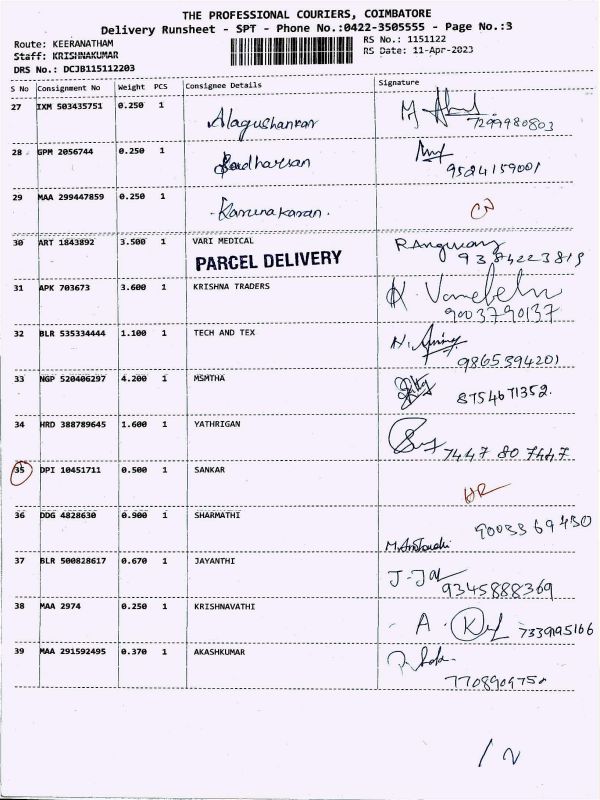 THE PROFESSIONAL COURIERS, COIMBATORE
Delivery Runsheet - SPT - Phone No.:0422-3505555 - Page No.:3
Route: KEERANATHAM
Staff: KRISHNAKUMAR
DRS No.: DCJB115112203
RS No.: 1151122
RS Date: 11-Apr-2023
S No Consignment No Weight PCS Consignee Details Signature
27 IXM 503435751 0.250 1 Alagushankar 7299980803
28 GPM 2056744 0.250 1 Sudharsan 9524159001
29 MAA 299447859 0.250 1 Karunakaran.
30 ART 1843892 3.500 1 VARI MEDICAL 9384223819
PARCEL DELIVERY
31 APK 703673 3.600 1 KRISHNA TRADERS 9003790137
32 BLR 535334444 1.100 1 TECH AND TEX 9865394201
33 NGP 520406297 4.200 1 MSMTHA 8754671352.
34 HRD 388789645 1.600 1 YATHRIGAN 7447 807447
35 DPI 10451711 0.500 1 SANKAR
36 DDG 4828630 0.900 1 SHARMATHI 9003369430
37 BLR 500828617 0.670 1 JAYANTHI 9345888369
38 MAA 2974 0.250 1 KRISHNAVATHI
39 MAA 291592495 0.370 1 AKASHKUMAR